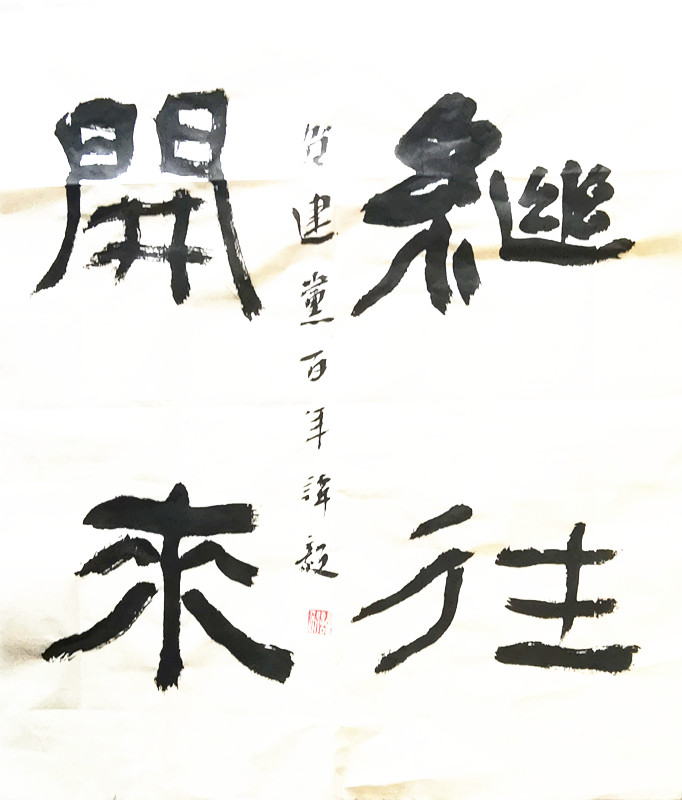 繼往
開來
賀建黨百年譚毅